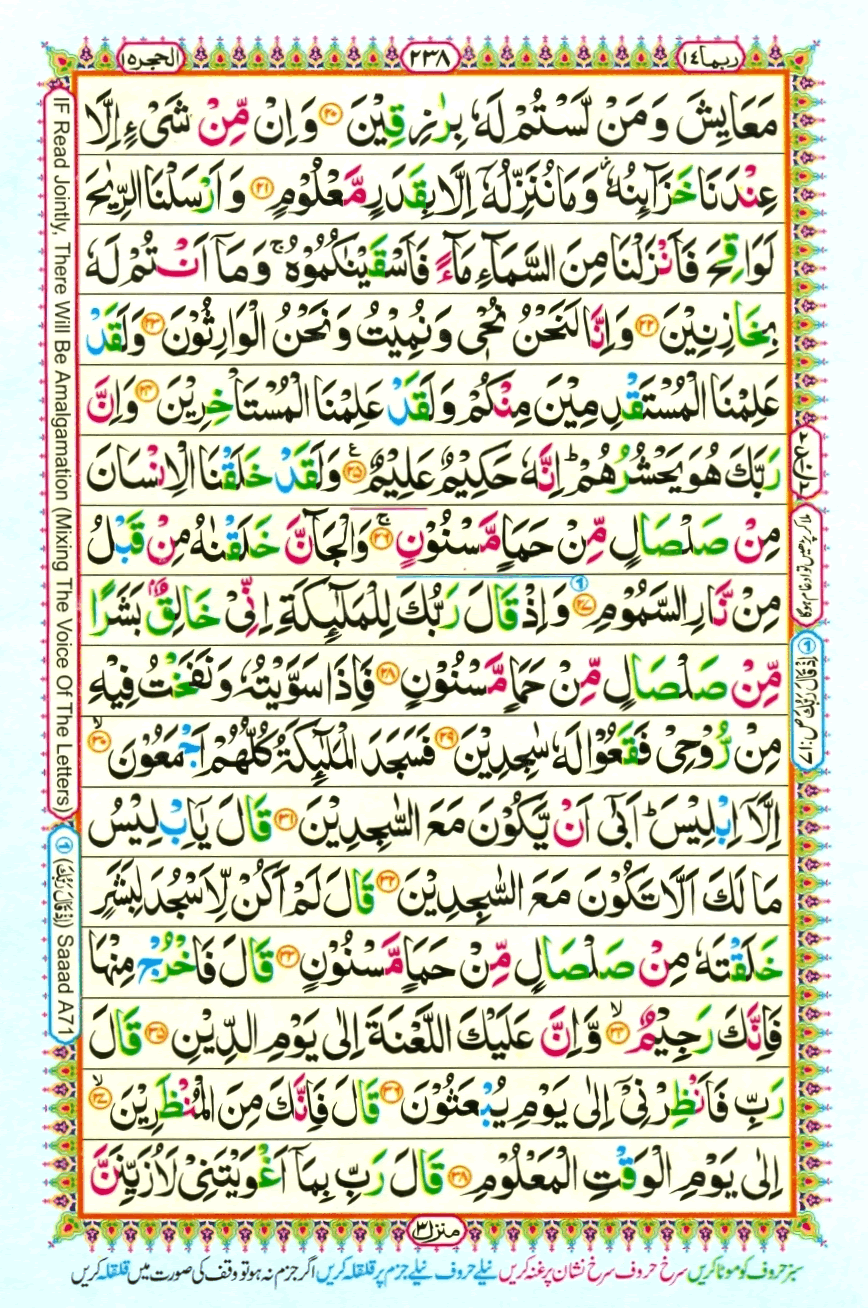 ربما ١٤
٢٣٨
الحجر ١٥
مَعَايِشَ وَمَنْ لَّسْتُمْ لَهٗ بِرٰزِقِيْنَ ٢٠ وَاِنْ مِّنْ شَیْءٍ اِلَّا
عِنْدَنَا خَزَآئِنُهٗ ۫ وَمَا نُنَزِّلُهٗۤ اِلَّا بِقَدَرٍ مَّعْلُوْمٍ ٢١ وَاَرْسَلْنَا الرِّيٰحَ
لَوَاقِحَ فَاَنْزَلْنَا مِنَ السَّمَآءِ مَآءً فَاَسْقَيْنٰكُمُوْهُ ۚ وَمَاۤ اَنْتُمْ لَهٗ
بِخَازِنِيْنَ ٢٢ وَاِنَّا لَنَحْنُ نُحْیٖ وَنُمِيْتُ وَنَحْنُ الْوَارِثُوْنَ ٢٣ وَلَقَدْ
عَلِمْنَا الْمُسْتَقْدِمِيْنَ مِنْكُمْ وَلَقَدْ عَلِمْنَا الْمُسْتَاْخِرِيْنَ ٢٤ وَاِنَّ
رَبَّكَ هُوَ يَحْشُرُهُمْ ؕ اِنَّهٗ حَكِيْمٌ عَلِيْمٌ ٢٥ ع وَلَقَدْ خَلَقْنَا الْاِنْسَانَ
مِنْ صَلْصَالٍ مِّنْ حَمَاٍ مَّسْنُوْنٍ ۚ ٢٦ وَالْجَآنَّ خَلَقْنٰهُ مِنْ قَبْلُ
مِنْ نَّارِ السَّمُوْمِ ٢٧ ① وَاِذْ قَالَ رَبُّكَ لِلْمَلٰٓئِكَةِ اِنِّیْ خَالِقٌۢ بَشَرًا
مِّنْ صَلْصَالٍ مِّنْ حَمَاٍ مَّسْنُوْنٍ ٢٨ فَاِذَا سَوَّيْتُهٗ وَنَفَخْتُ فِيْهِ
مِنْ رُّوْحِیْ فَقَعُوْا لَهٗ سٰجِدِيْنَ ٢٩ فَسَجَدَ الْمَلٰٓئِكَةُ كُلُّهُمْ اَجْمَعُوْنَ ۙ ٣٠
اِلَّاۤ اِبْلِيْسَ ؕ اَبٰۤی اَنْ يَّكُوْنَ مَعَ السّٰجِدِيْنَ ٣١ قَالَ يٰۤاِبْلِيْسُ
مَا لَكَ اَلَّا تَكُوْنَ مَعَ السّٰجِدِيْنَ ٣٢ قَالَ لَمْ اَكُنْ لِّاَسْجُدَ لِبَشَرٍ
خَلَقْتَهٗ مِنْ صَلْصَالٍ مِّنْ حَمَاٍ مَّسْنُوْنٍ ٣٣ قَالَ فَاخْرُجْ مِنْهَا
فَاِنَّكَ رَجِيْمٌ ۙ ٣٤ وَّاِنَّ عَلَيْكَ اللَّعْنَةَ اِلٰی يَوْمِ الدِّيْنِ ٣٥ قَالَ
رَبِّ فَاَنْظِرْنِیْۤ اِلٰی يَوْمِ يُبْعَثُوْنَ ٣٦ قَالَ فَاِنَّكَ مِنَ الْمُنْظَرِيْنَ ۙ ٣٧
اِلٰی يَوْمِ الْوَقْتِ الْمَعْلُوْمِ ٣٨ قَالَ رَبِّ بِمَاۤ اَغْوَيْتَنِیْ لَاُزَيِّنَنَّ
منزل ٣
سبز حروف کو موٹا کریں سرخ حروف سرخ نشان پر غنہ کریں نیلے حروف نیلے جزم پر قلقلہ کریں اگر جزم نہ ہو تو وقف کی صورت میں قلقلہ کریں
ملا کر پڑھیں تو ادغام ہوگا
① اِذْ قَالَ رَبُّكَ ص: ٧١
IF Read Jointly, There Will Be Amalgamation (Mixing The Voice Of The Letters)
① (اِذْ قَالَ رَبُّكَ) Saaad A71